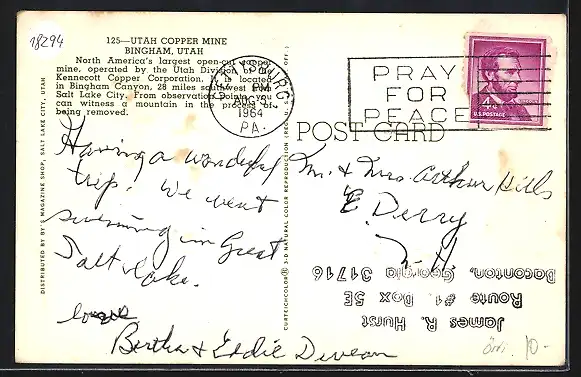 18294
125—UTAH COPPER MINE
BINGHAM, UTAH
North America's largest open-cut copper
mine, operated by the Utah Division of the
Kennecott Copper Corporation. It is located
in Bingham Canyon, 28 miles southwest from
Salt Lake City. From observation points you
can witness a mountain in the process of
being removed.
PM
AUG 3
1964
PA.
PRAY
FOR
PEACE
4¢
U.S. POSTAGE
POST CARD
Having a wonderful
trip. We went
swimming in Great
Salt Lake.
love
Bertha & Eddie
Mr. & Mrs. Arthur Hills
E. Derry
N H
James R. Hurst
Route #1 Box 5E
Baconton, Georgia 31716
DISTRIBUTED BY MAGAZINE SHOP, SALT LAKE CITY, UTAH
CURTEICHCOLOR® 3-D NATURAL COLOR REPRODUCTION (REG. U.S.A.
10.-